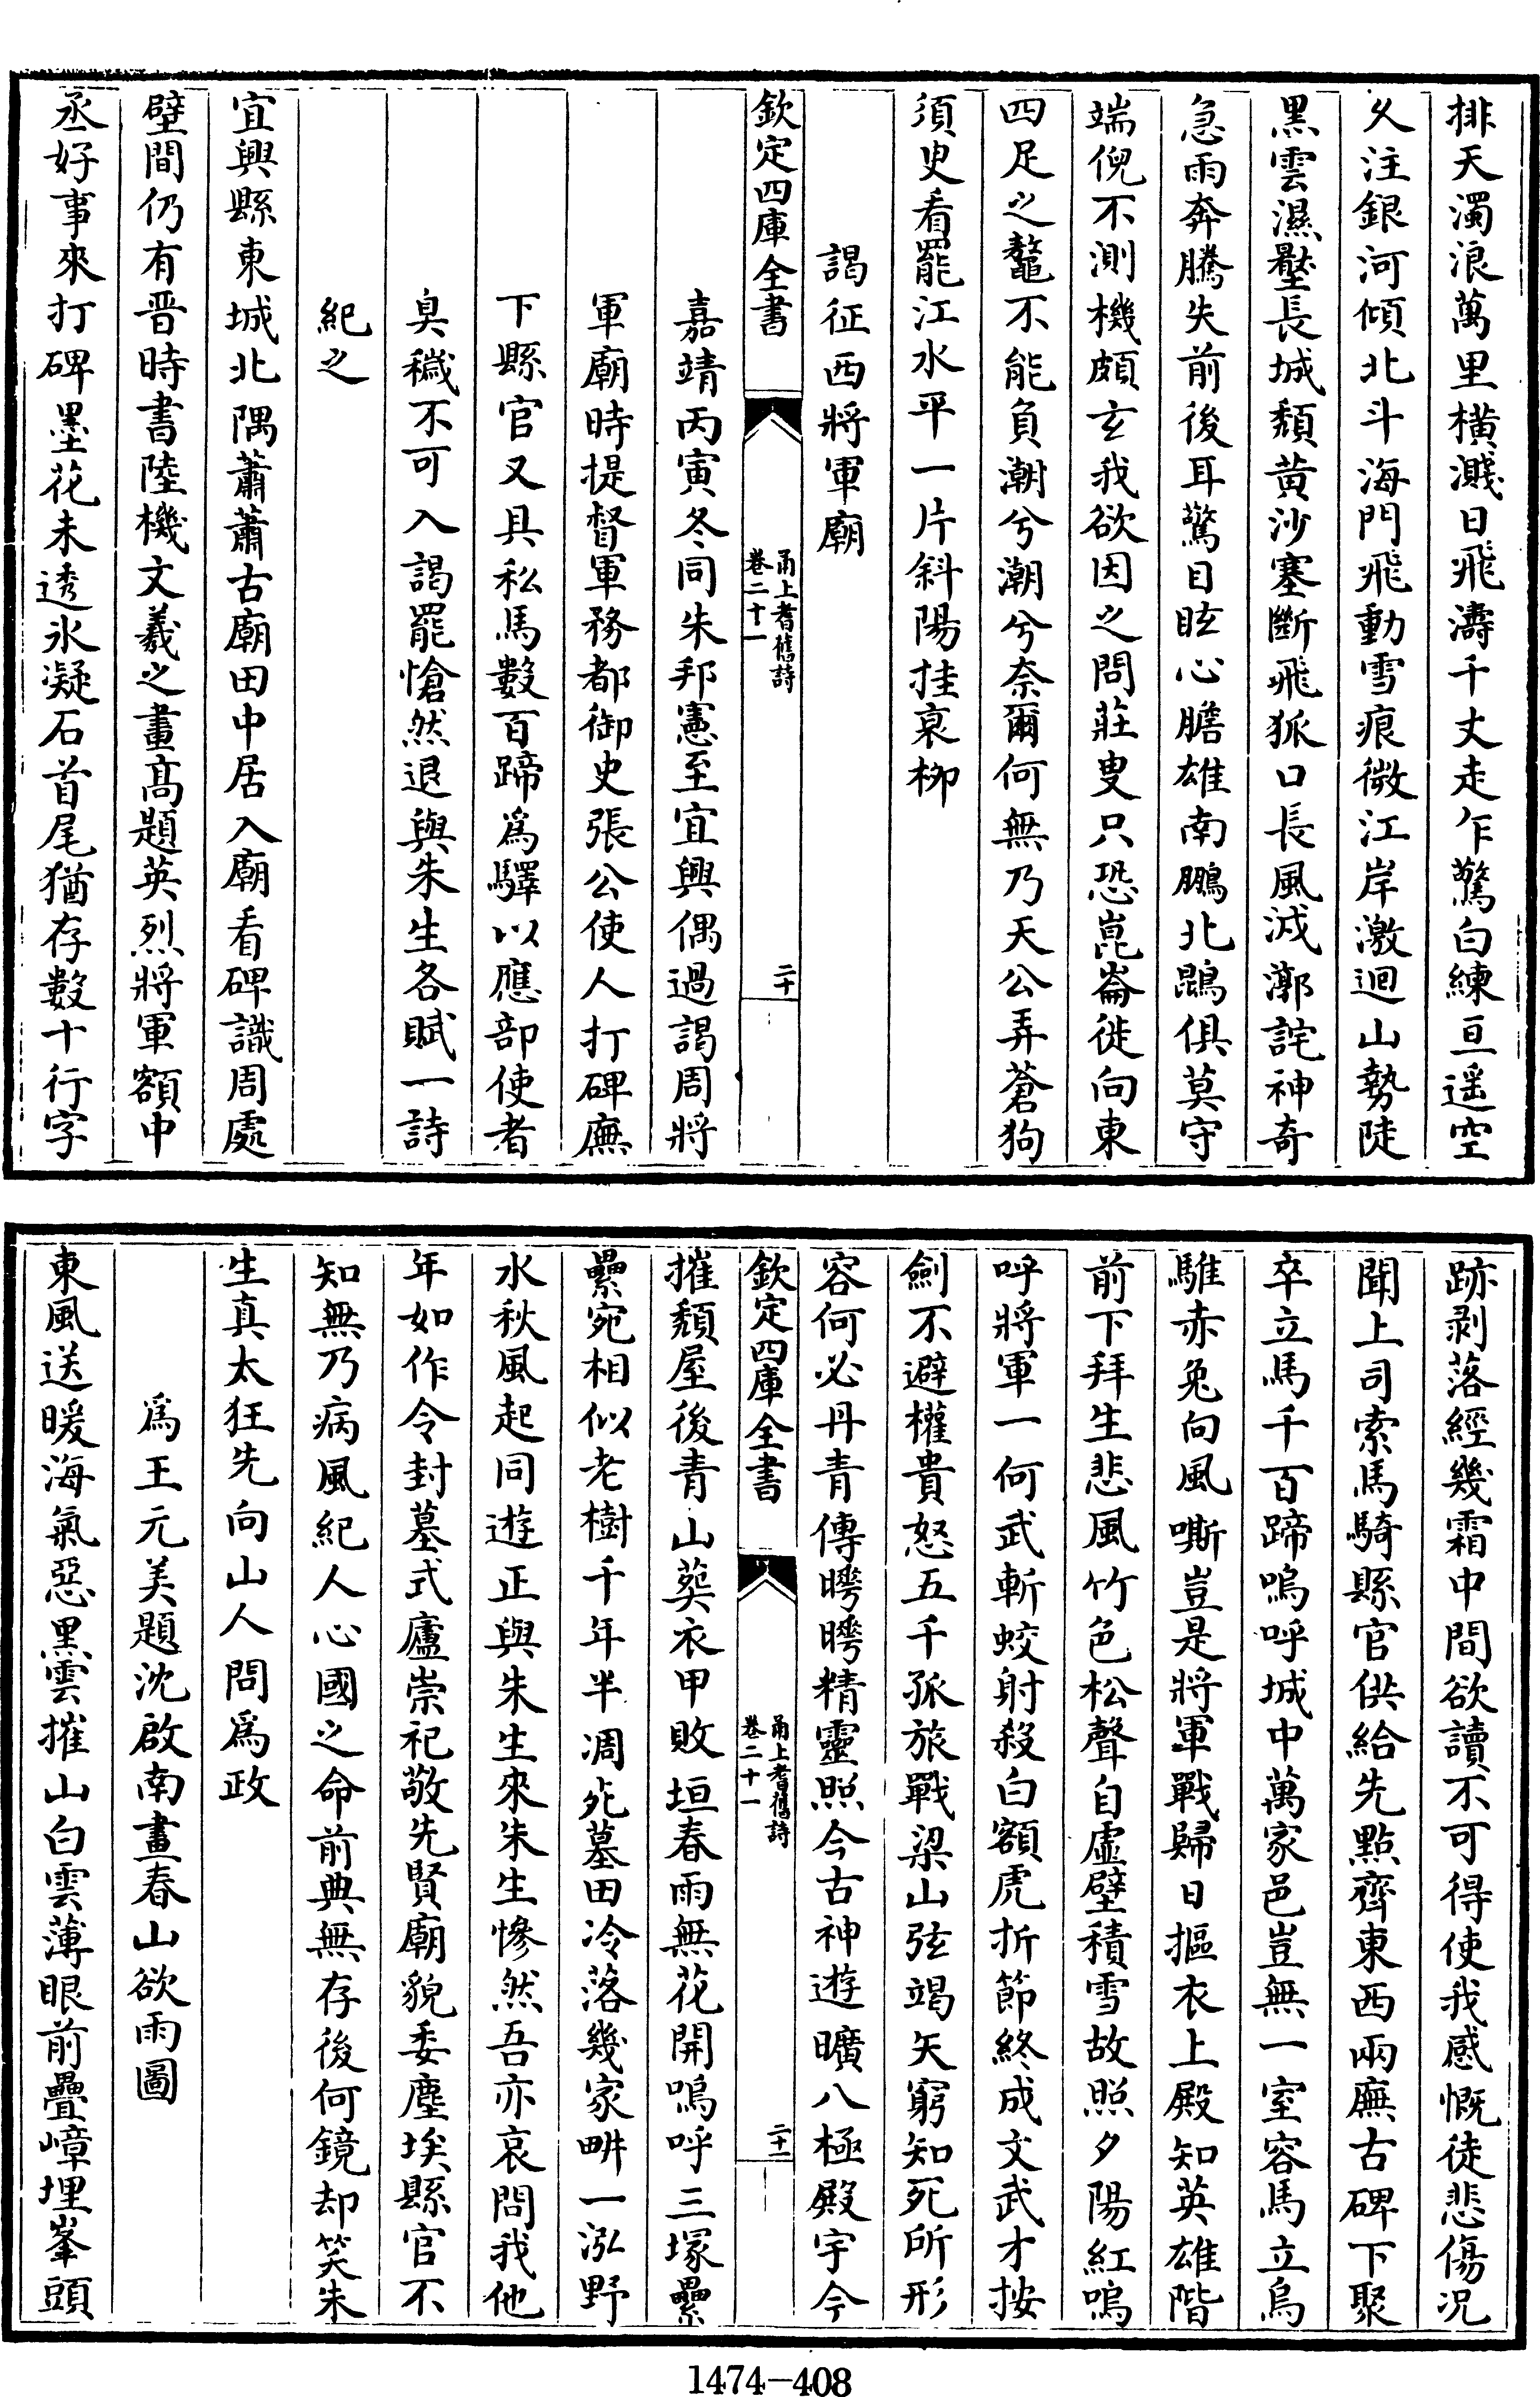 排天濁浪萬里橫濺日飛濤千丈走乍驚白練亘遥空
乆注銀河傾北斗海門飛動雪痕微江岸激迴山勢陡
黑雲濕壓長城頽黃沙塞斷飛狐口長風泧漷詫神奇
急雨奔騰失前後耳驚目眩心膽雄南鵬北鵾俱莫守
端倪不測機頗玄我欲因之問莊叟只恐崑崙徙向東
四足之鼇不能負潮兮潮兮奈爾何無乃天公弄蒼狗
須臾看罷江水平一片斜陽挂衰栁
謁征西將軍廟
欽定四庫全書
甬上耆舊詩
卷二十一
二十
嘉靖丙寅冬同朱邦憲至宜興偶過謁周將
軍廟時提督軍務都御史張公使人打碑廡
下縣官又具私馬數百蹄爲驛以應部使者
臭穢不可入謁罷愴然退與朱生各賦一詩
紀之
宜興縣東城北隅蕭蕭古廟田中居入廟看碑識周處
壁間仍有晋時書陸機文羲之畫髙題英烈將軍額中
丞好事來打碑墨花未透氷凝石首尾猶存數十行字
跡剥落經幾霜中間欲讀不可得使我感慨徒悲傷况
聞上司索馬騎縣官供給先點齊東西兩廡古碑下聚
卒立馬千百蹄嗚呼城中萬家邑豈無一室容馬立烏
騅赤兔向風嘶豈是將軍戰歸日摳衣上殿知英雄階
前下拜生悲風竹色松聲自虛壁積雪故照夕陽紅嗚
呼將軍一何武斬蛟射殺白額虎折節終成文武才按
劍不避權貴怒五千孤旅戰梁山弦竭矢窮知死所形
容何必丹青傳暳暳精靈照今古神遊曠八極殿宇今
欽定四庫全書
甬上耆舊詩
卷二十一
二十一
摧頽屋後青山葬衣甲敗垣春雨無花開嗚呼三塚纍
纍宛相似老樹千年半凋死墓田冷落幾家畊一泓野
水秋風起同遊正與朱生來朱生慘然吾亦哀問我他
年如作令封墓式廬崇祀敬先賢廟貌委塵埃縣官不
知無乃病風紀人心國之命前典無存後何鏡却笑朱
生真太狂先向山人問爲政
爲王元美題沈啟南畫春山欲雨圖
東風送暖海氣惡黑雲摧山白雲薄眼前疊嶂埋峯頭
1474-408